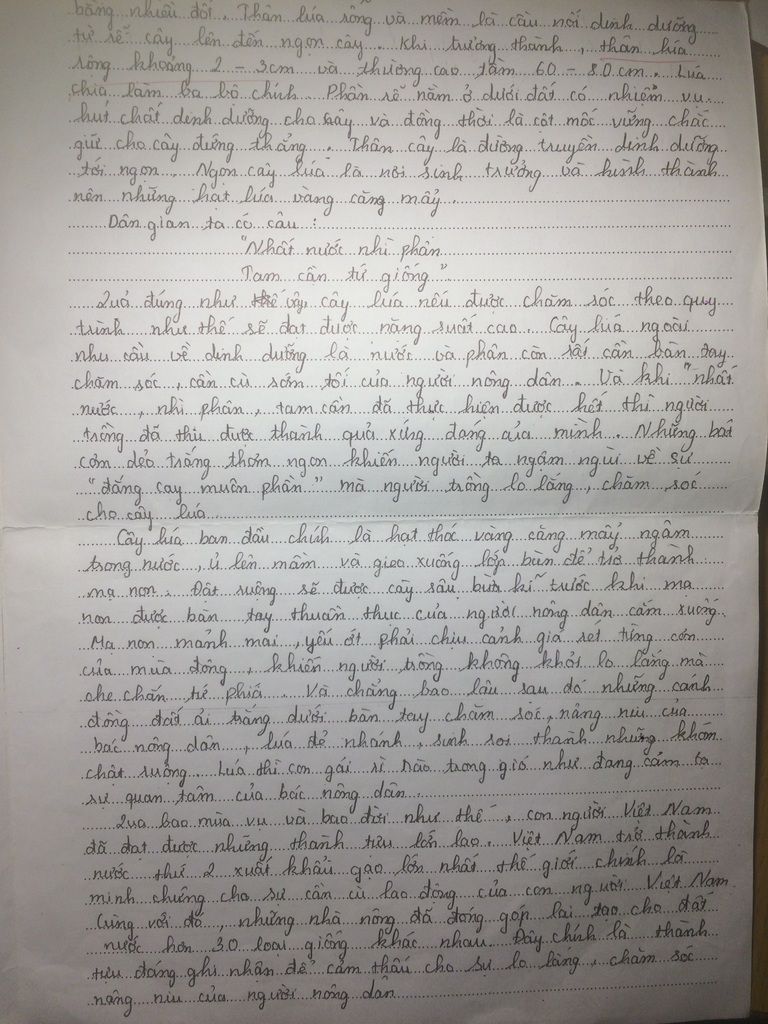 bằng nhiều đôi. Thân lúa rỗng và mềm là cầu nối dinh dưỡng
từ rễ cây lên đến ngọn cây. Khi trưởng thành, thân lúa
rộng khoảng 2 - 3cm và thường cao tầm 60 - 80cm. Lúa
chia làm ba bộ chính. Phần rễ nằm ở dưới đất có nhiệm vụ
hút chất dinh dưỡng cho cây và đồng thời là cột mốc vững chắc
giữ cho cây đứng thẳng. Thân cây là đường truyền dinh dưỡng
tới ngọn. Ngọn cây lúa là nơi sinh trưởng và hình thành
nên những hạt lúa vàng căng mẩy.
Dân gian ta có câu:
"Nhất nước nhì phân
Tam cần tứ giống".
Quả đúng như vậy, cây lúa nếu được chăm sóc theo quy
trình như thế sẽ đạt được năng suất cao. Cây lúa ngoài
nhu cầu về dinh dưỡng là nước và phân còn rất cần bàn tay
chăm sóc, cần cù sớm tối của người nông dân. Và khi "nhất
nước, nhì phân, tam cần đã thực hiện được hết thì người
trồng đã thu được thành quả xứng đáng của mình. Những bát
cơm dẻo trắng thơm ngon khiến người ta ngậm ngùi về sự
"đắng cay muôn phần" mà người trồng lo lắng, chăm sóc
cho cây lúa.
Cây lúa ban đầu chính là hạt thóc vàng căng mẩy ngâm
trong nước, ủ lên mầm và gieo xuống lớp bùn để trở thành
mạ non. Đất ruộng sẽ được cày sâu bừa kĩ trước khi mạ
non được bàn tay thuần thục của người nông dân cắm xuống.
Mạ non mảnh mai, yếu ớt phải chịu cảnh giá rét từng cơn
của mùa đông, khiến người trồng không khỏi lo lắng mà
che chắn tứ phía. Và chẳng bao lâu sau đó những cánh
đồng đất ải trắng dưới bàn tay chăm sóc, nâng niu của
bác nông dân, lúa đẻ nhánh, sinh sôi thành những khóm
chật ruộng. Lúa thì con gái rì rào trong gió như đang cảm tạ
sự quan tâm của bác nông dân.
Qua bao mùa vụ và bao đời như thế, con người Việt Nam
đã đạt được những thành tựu lớn lao. Việt Nam trở thành
nước thứ 2 xuất khẩu gạo lớn nhất thế giới chính là
minh chứng cho sự cần cù lao động của con người Việt Nam.
Cùng với đó, những nhà nông đã đóng góp lai tạo cho đất
nước hơn 30 loại giống khác nhau. Đây chính là thành
tựu đáng ghi nhận để cảm thấu cho sự lo lắng, chăm sóc
nâng niu của người nông dân.